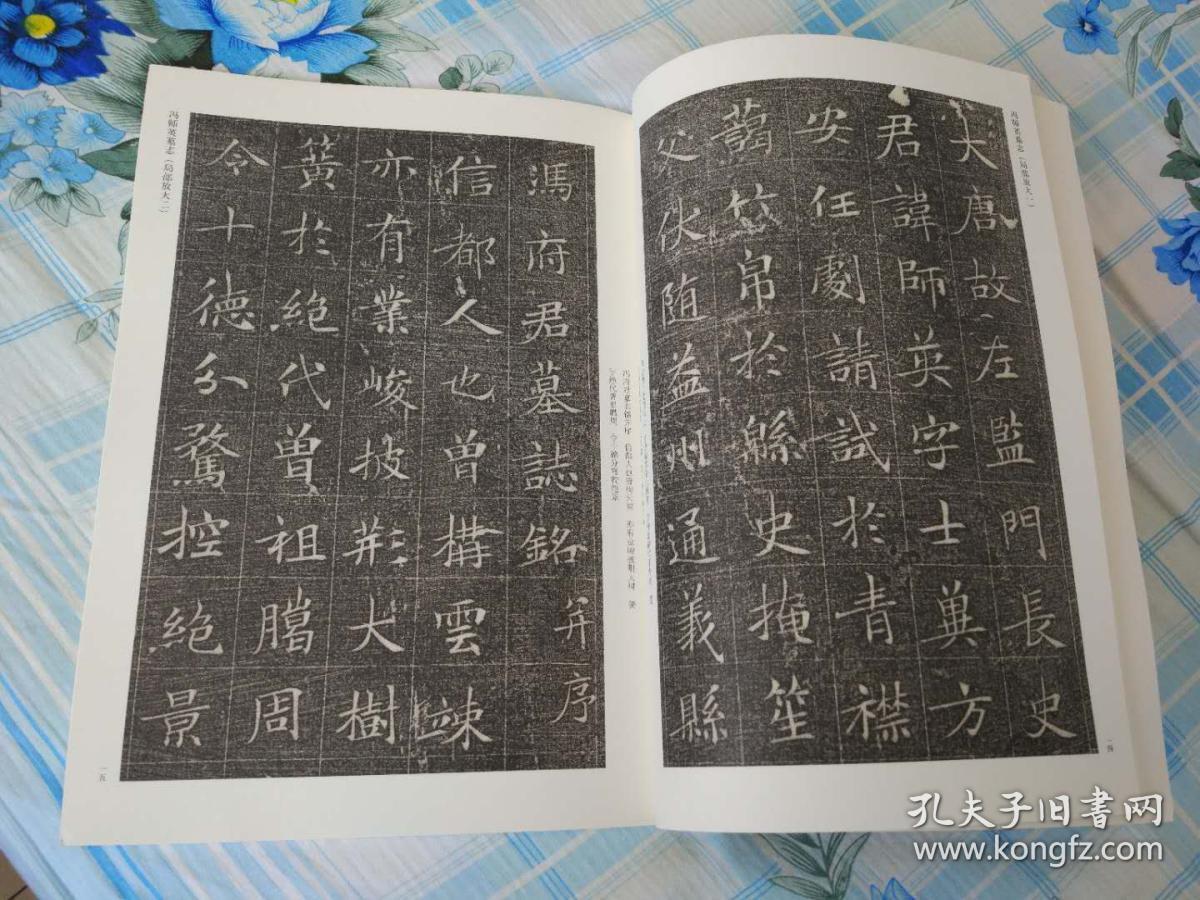 冯师英墓志（局部放大一）
大唐故左監門長史
君諱師英字士萬方
安任劇請試於青襟
竹帛於緜史掩笙
父伙随益州通義縣
一四
馮府君墓誌銘并序
信都人也曾構雲竦
亦有業峻披荊大樹
簧於絕代曾祖騰周
令十德分騖控絕景
冯师英墓志（局部放大二）
一五
孔夫子旧书网
www.kongfz.com